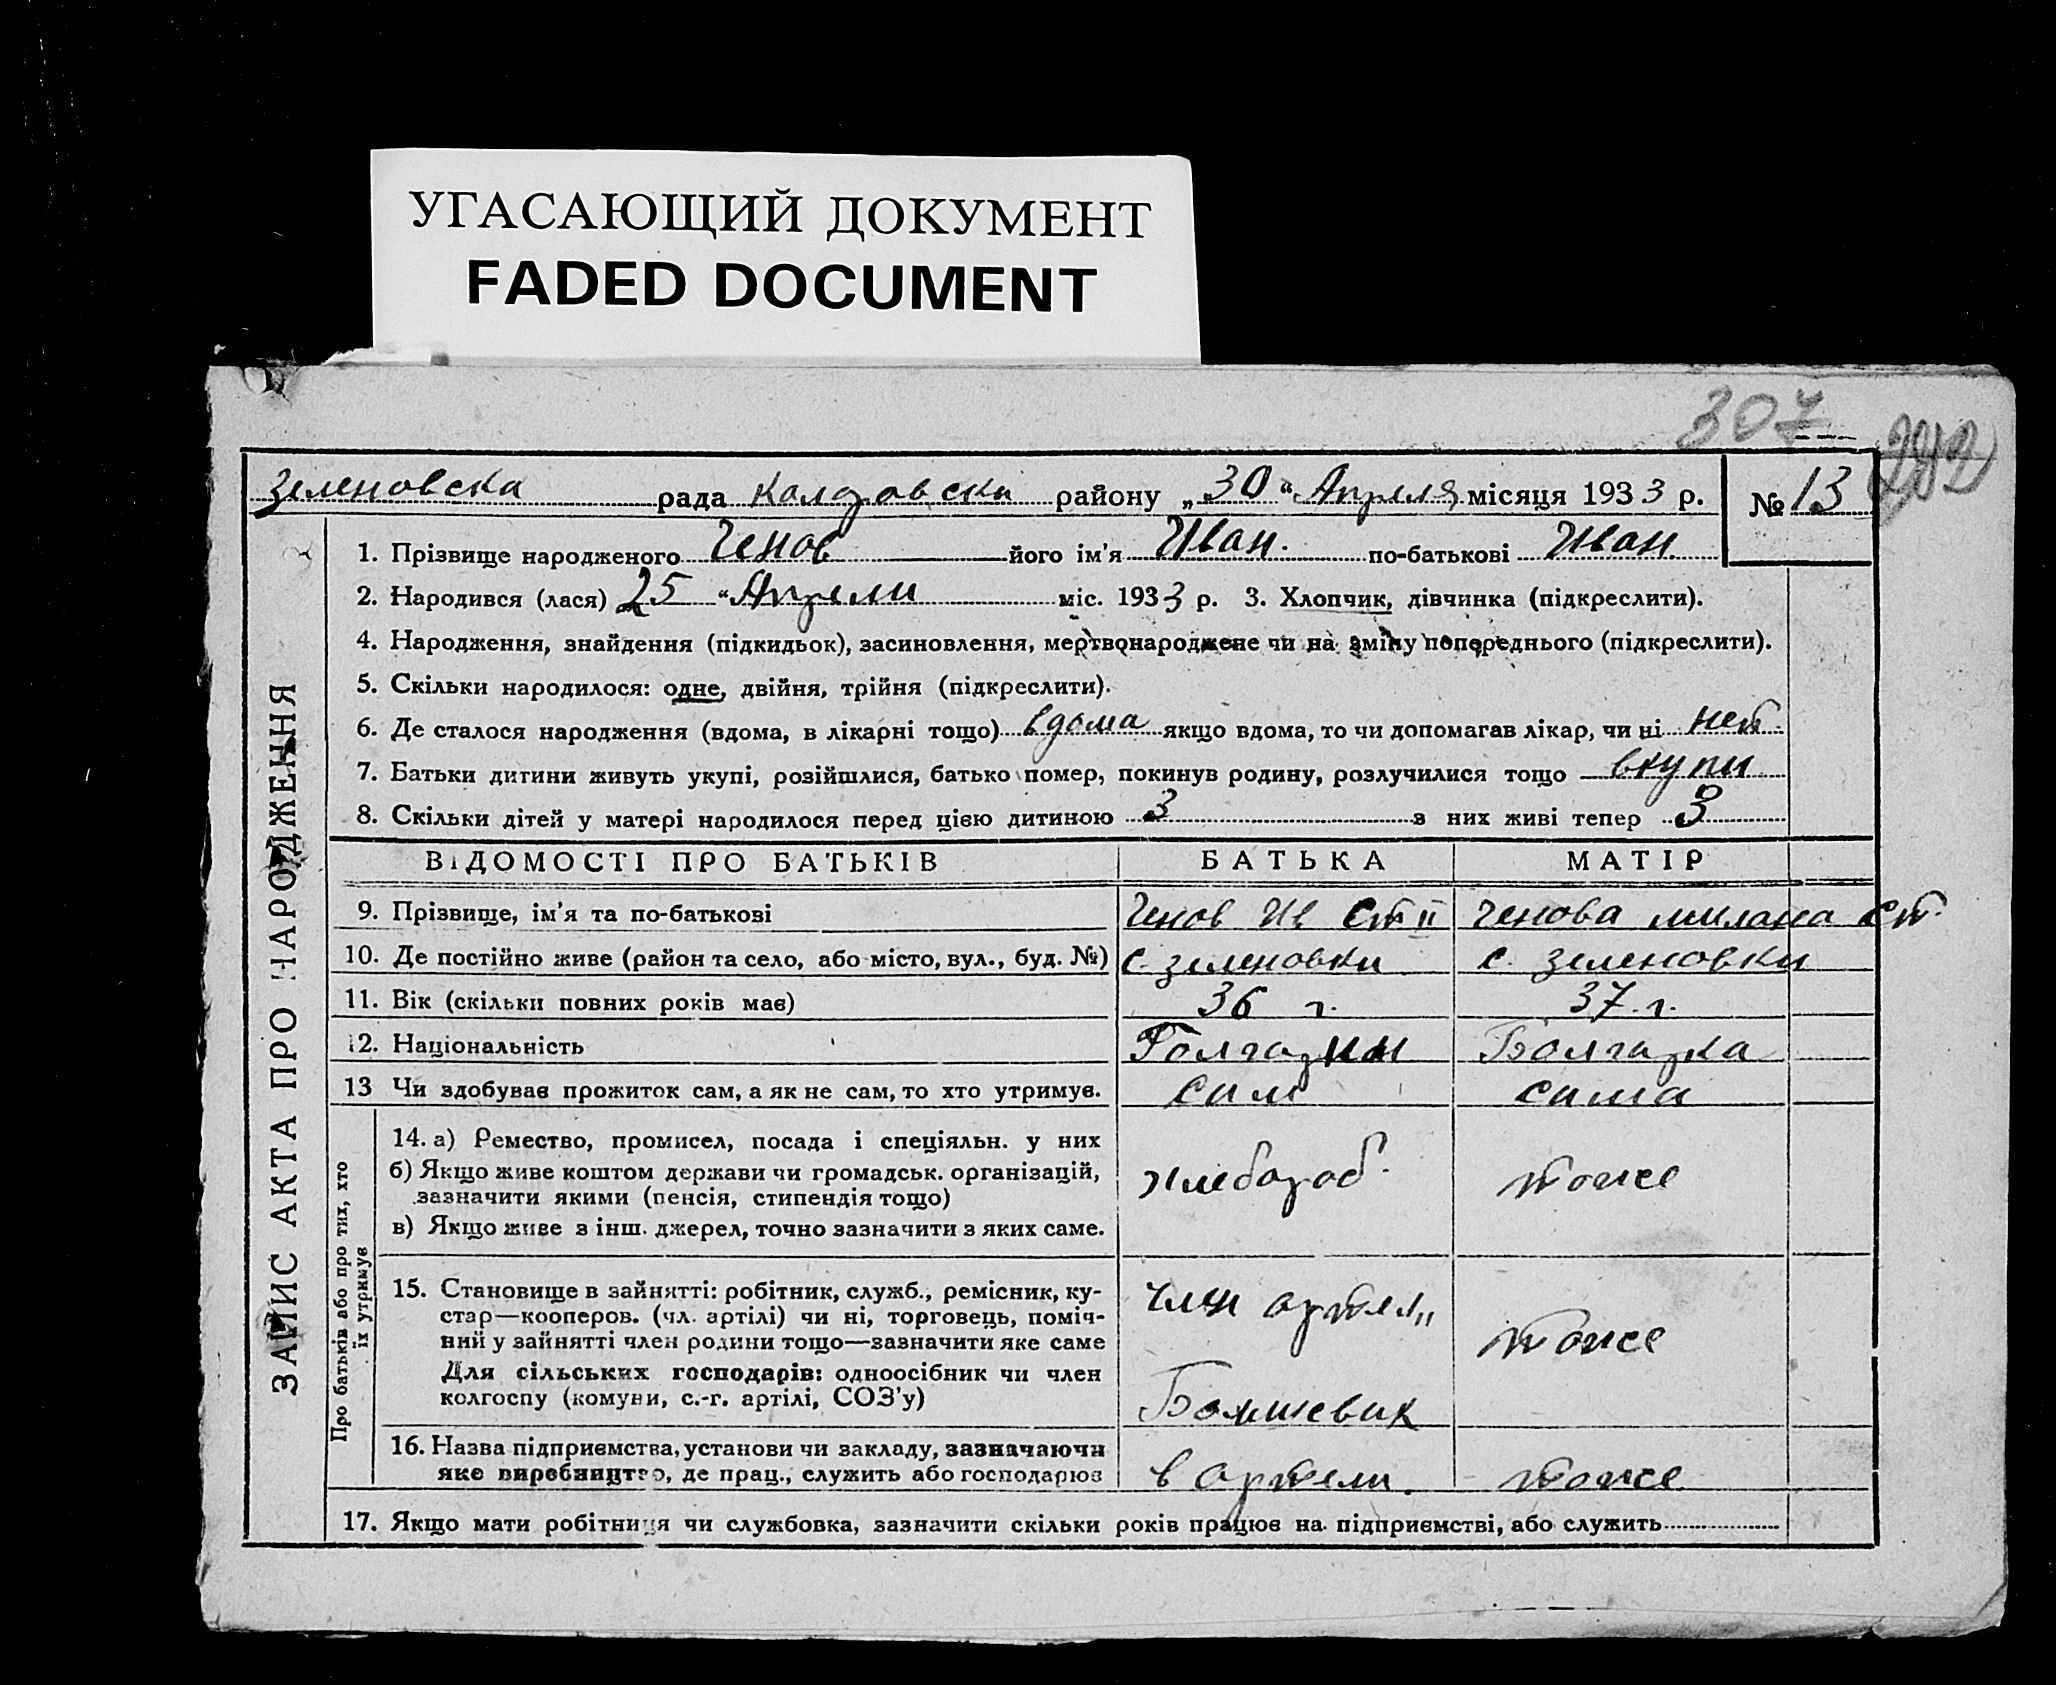 УГАСАЮЩИЙ ДОКУМЕНТ
FADED DOCUMENT
307
зеленовска рада района „30“ Апреля місяця 1933 р. № 13
ЗАПИС АКТА ПРО НАРОДЖЕННЯ
1. Прізвище народженого Ченов його ім'я Иван. по-батькові Иван
2. Народився (лася) 25 “ Апрели міс. 1933 р. 3. Хлопчик, дівчинка (підкреслити).
4. Народження, знайдення (підкидьок), засиновлення, мертвонароджене чи на зміну попереднього (підкреслити).
5. Скільки народилося: одне, двійня, трійня (підкреслити).
6. Де сталося народження (вдома, в лікарні тощо) вдома якщо вдома, то чи допомагав лікар, чи ні нет.
7. Батьки дитини живуть укупі, розійшлися, батько помер, покинув родину, розлучилися тощо — вкупи
8. Скільки дітей у матері народилося перед цією дитиною 3 з них живі тепер 3
ВІДОМОСТІ ПРО БАТЬКІВ БАТЬКА МАТІР
9. Прізвище, ім'я та по-батькові Ченов Ив Ст II Ченова милана Ст.
10. Де постійно живе (район та село, або місто, вул., буд. №) с. зеленовки с. зеленовки
11. Вік (скільки повних років має) 36 г. 37. г.
12. Національність Болгарин Болгарка
13 Чи здобуває прожиток сам, а як не сам, то хто утримує. сам сама
Про батьків або про тих, хто
їх утримує
14. а) Ремество, промисел, посада і спеціяльн. у них
б) Якщо живе коштом держави чи громадськ. організацій,
зазначити якими (пенсія, стипендія тощо)
в) Якщо живе з інш. джерел, точно зазначити з яких саме.
хлебороб. тоже
15. Становище в зайнятті: робітник, служб., ремісник, ку-
стар—кооперов. (чл. артілі) чи ні, торговець, поміч-
ний у зайнятті член родини тощо—зазначити яке саме
Для сільських господарів: одноосібник чи член
колгоспу (комуни, с.-г. артілі, СОЗ'у)
член артели тоже
Большевик
16. Назва підприємства, установи чи закладу, зазначаючи
яке виробництво, де прац., служить або господарює
в артели. тоже
17. Якщо мати робітниця чи службовка, зазначити скільки років працює на підприємстві, або служить